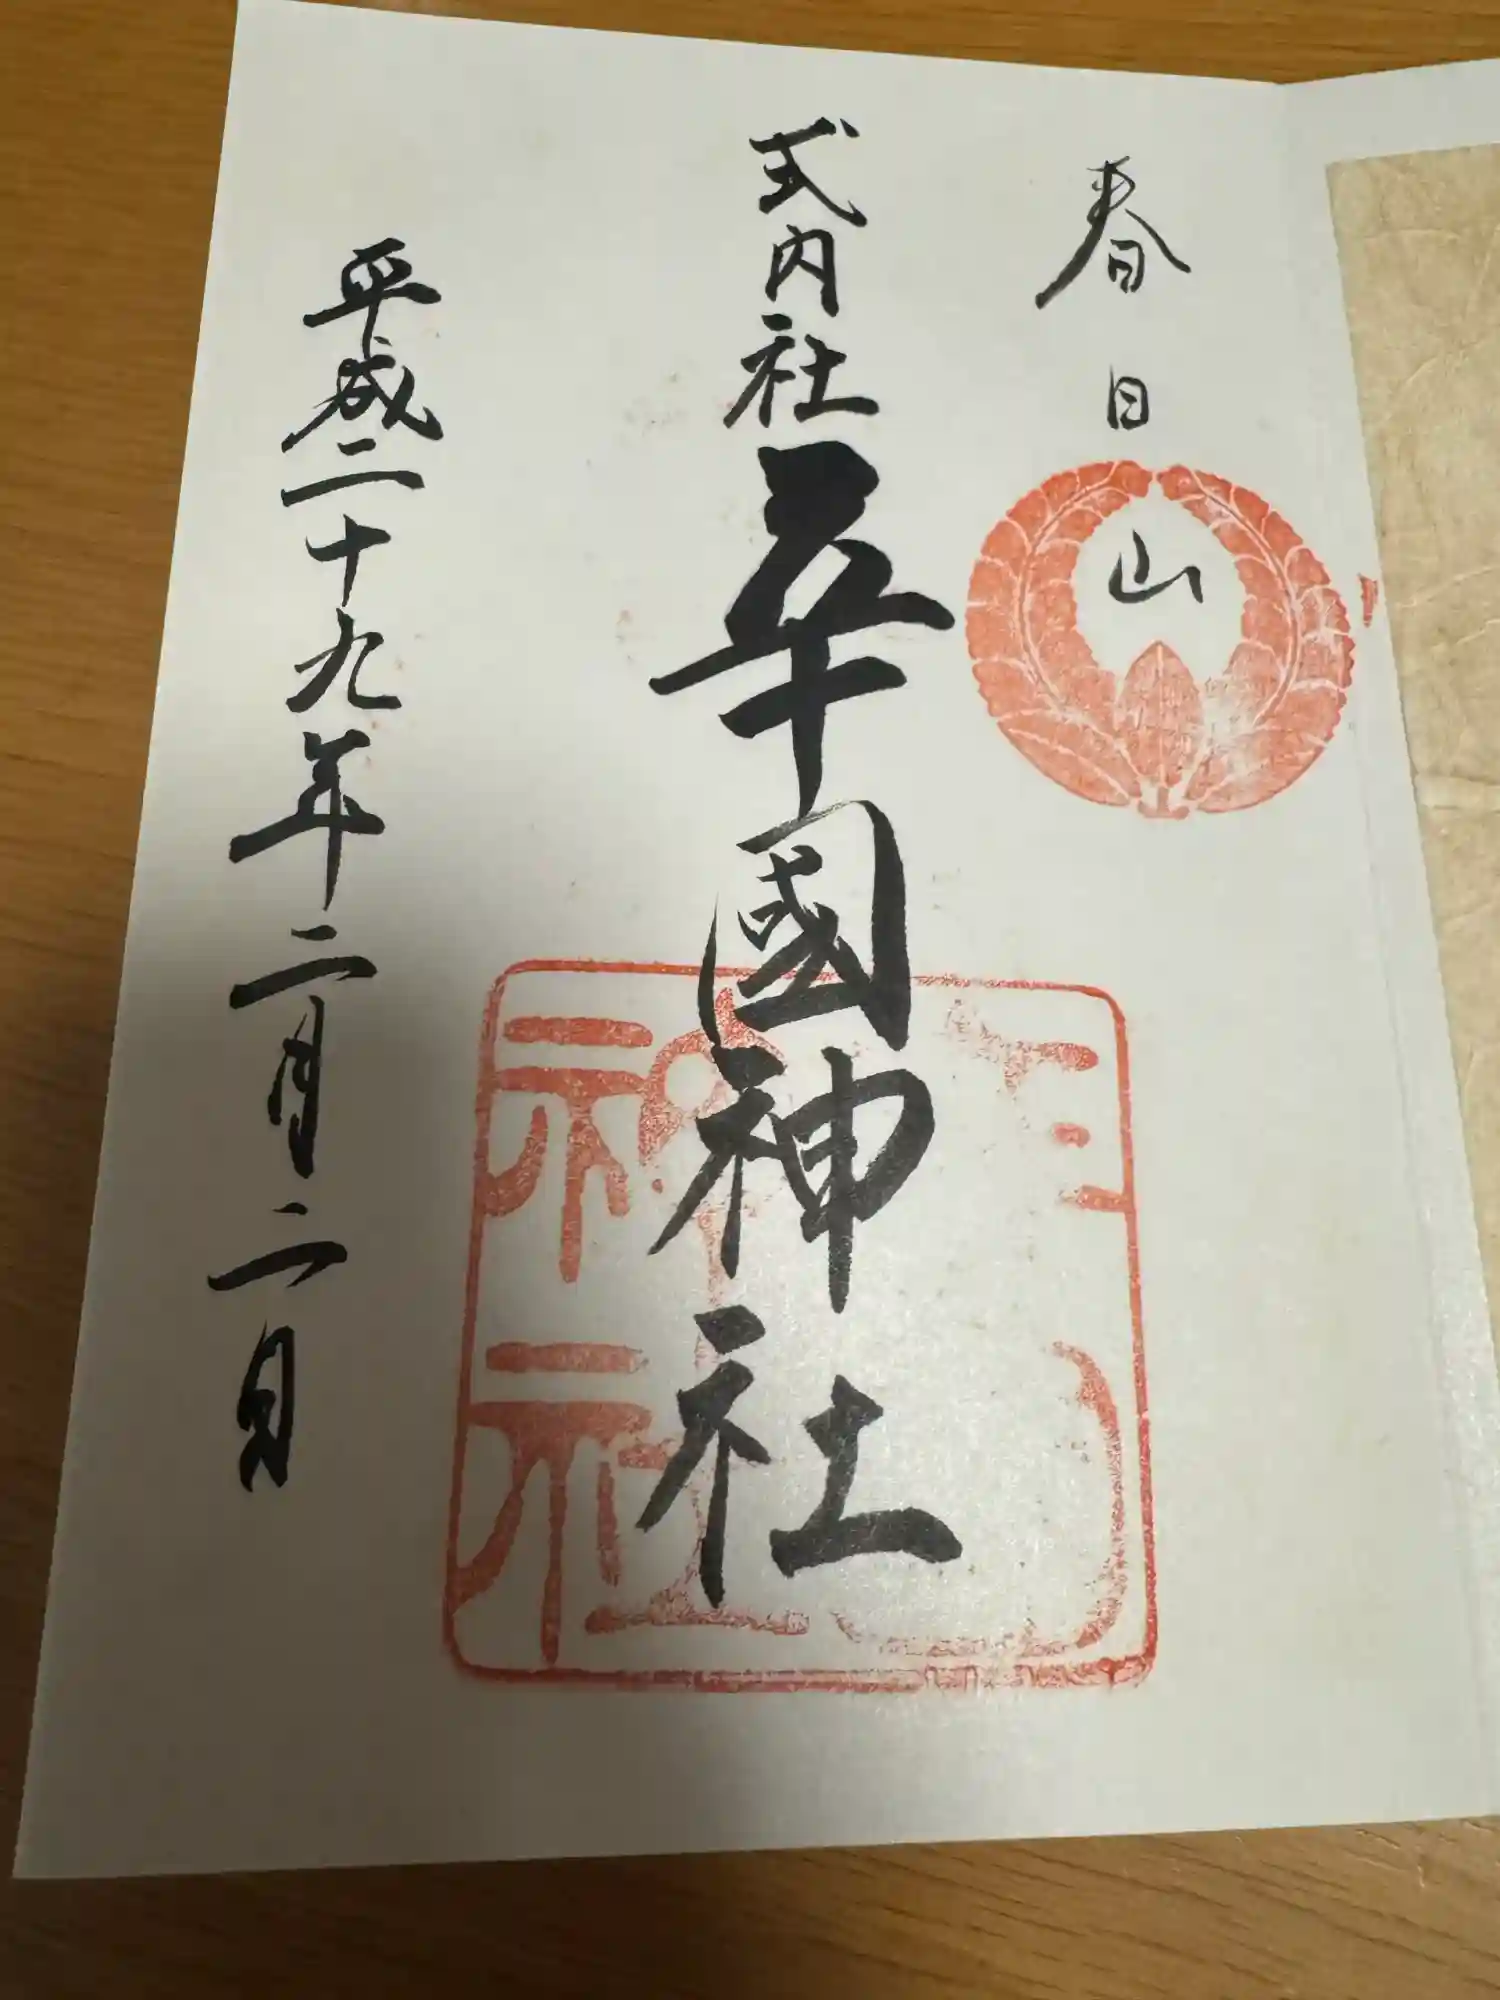 春日山
式内社 辛國神社
平成二十九年二月二日
神社